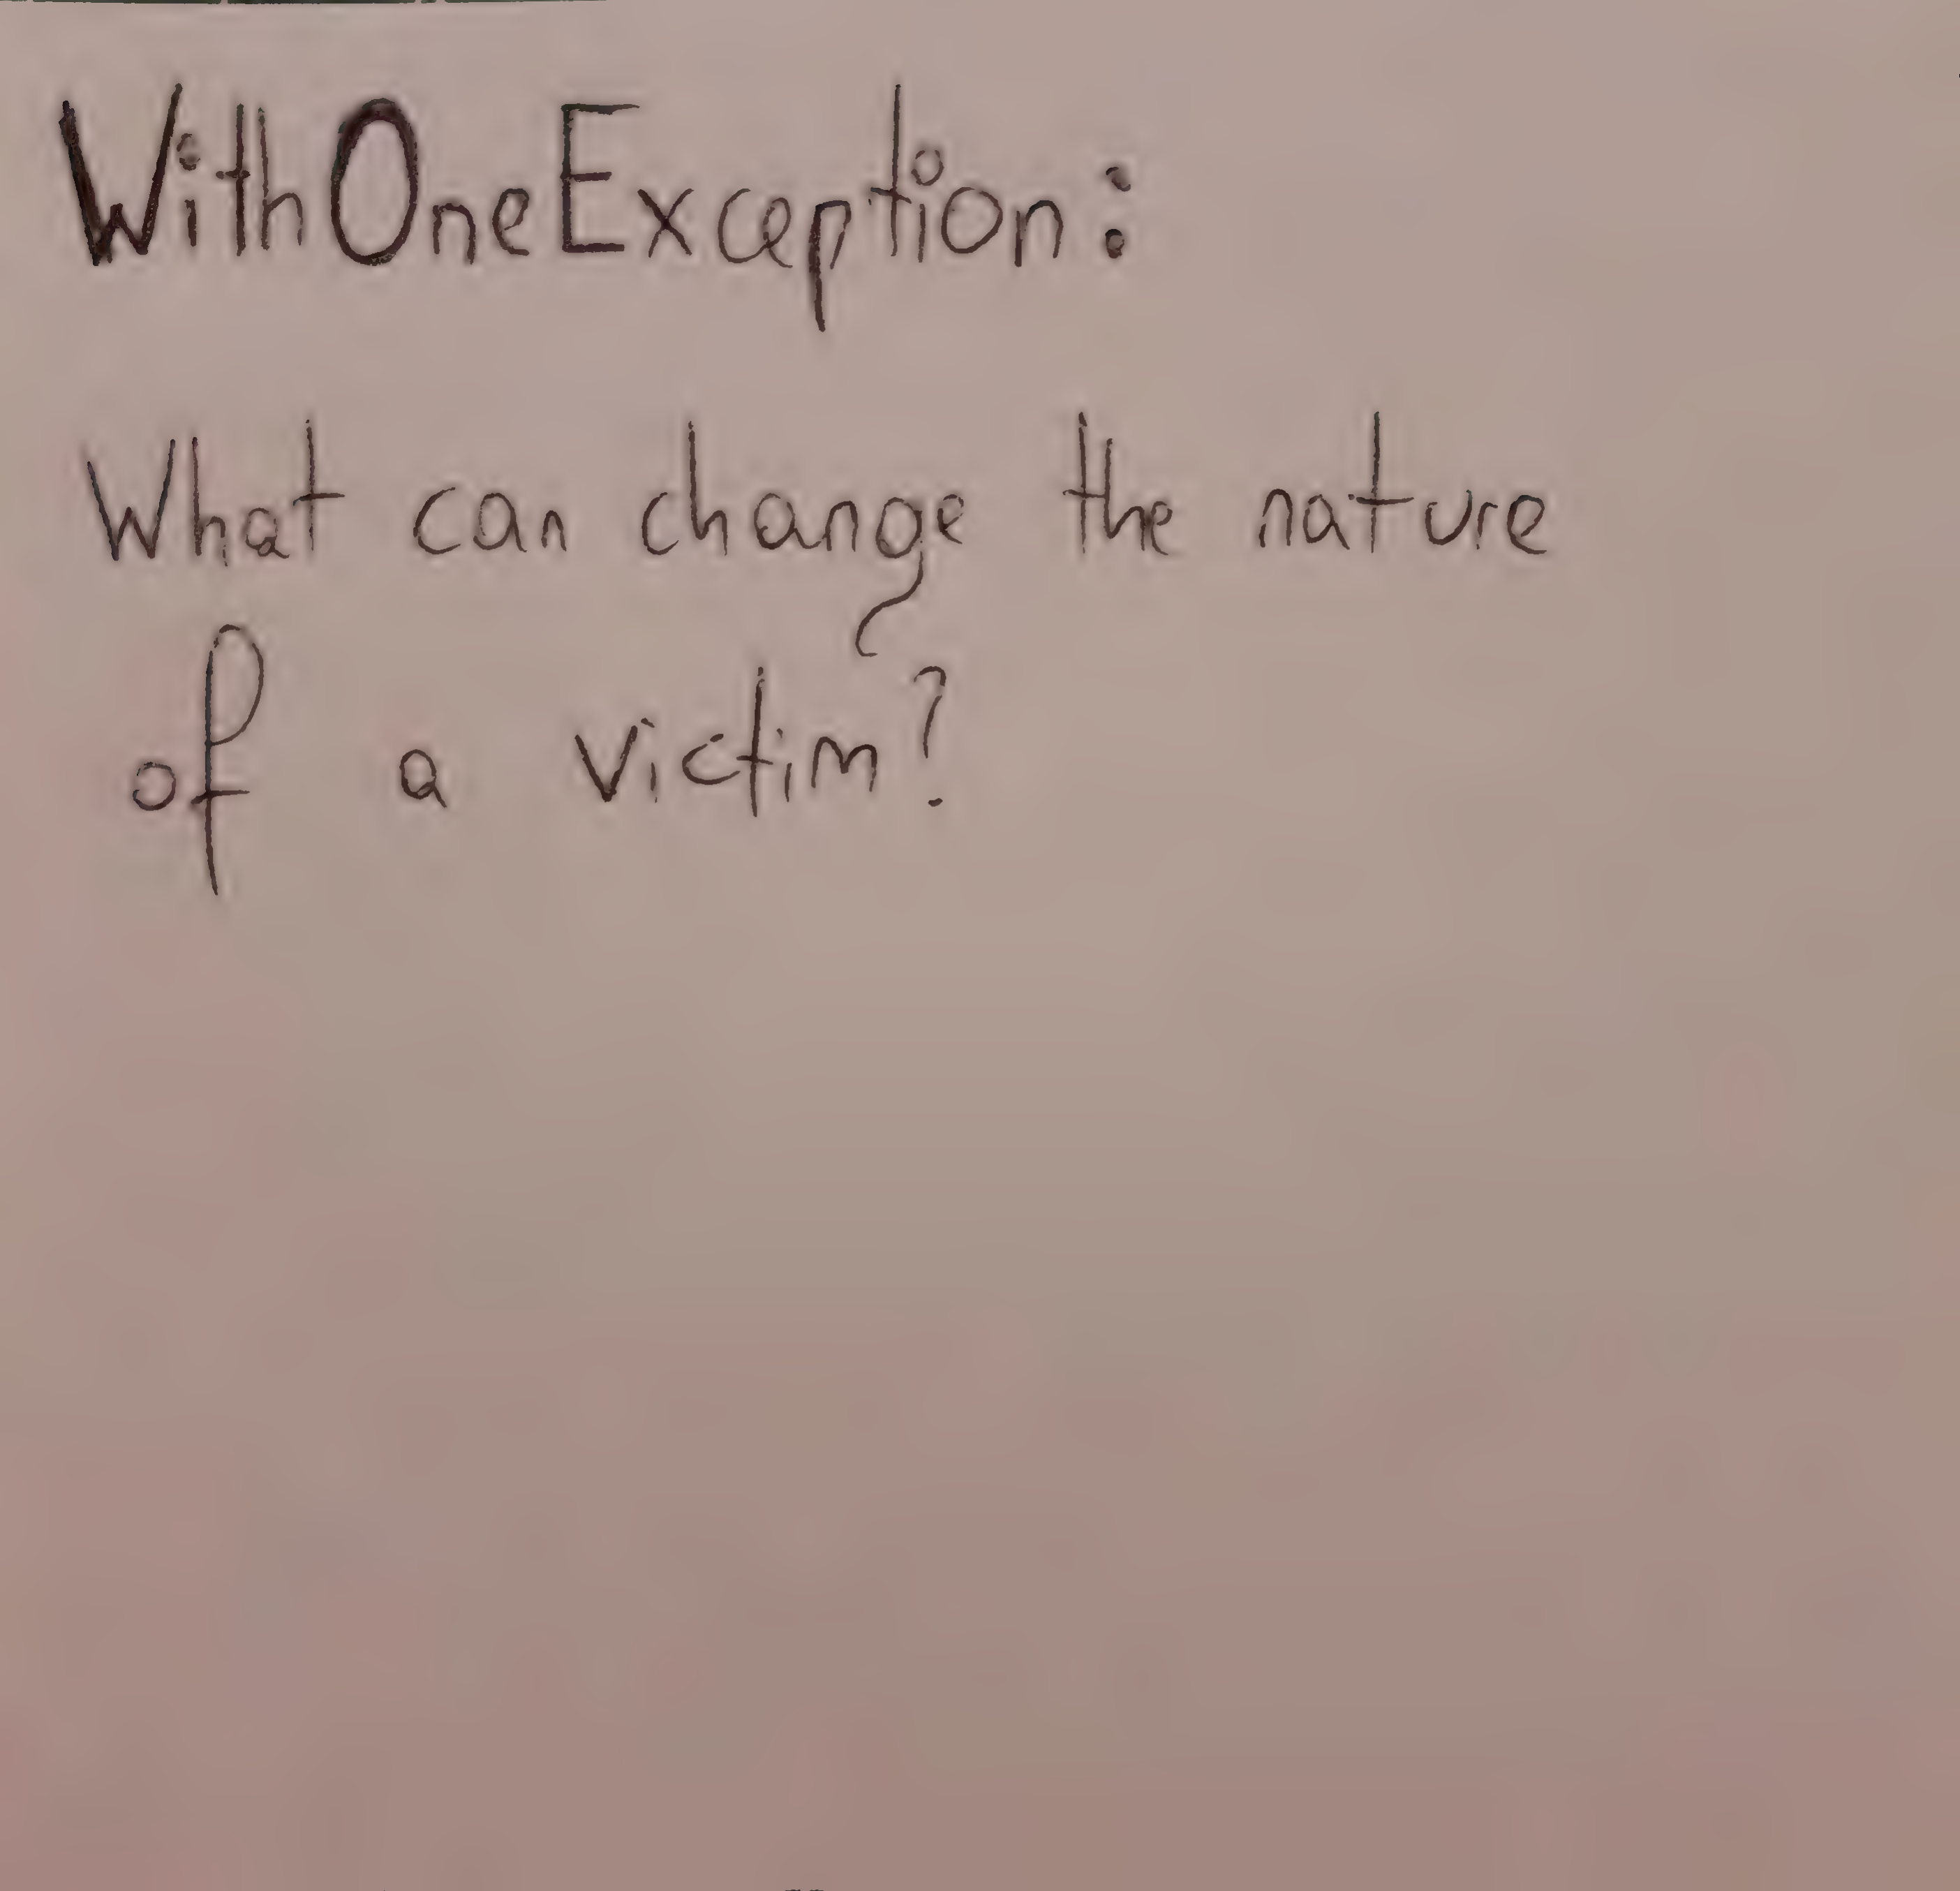 WithOneException:
What can change the nature
of a victim?